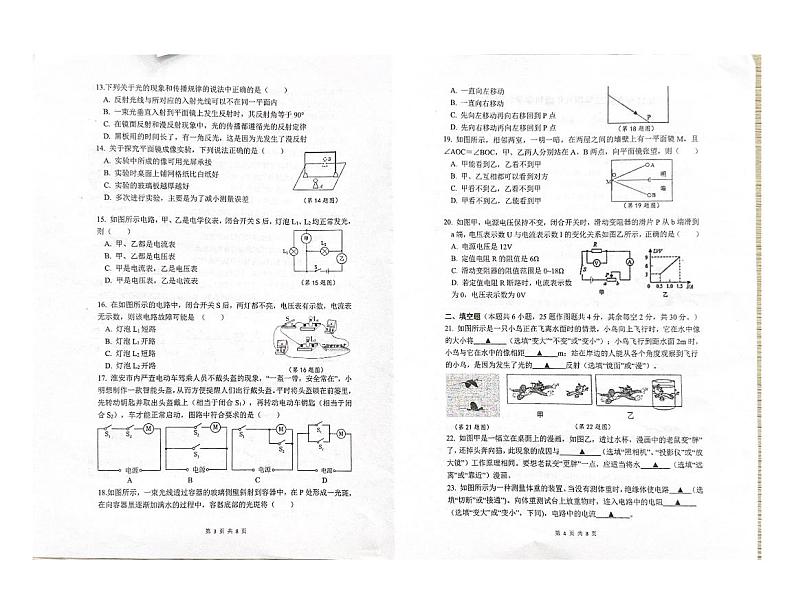 13.下列关于光的现象和传播规律的说法中正确的是（    ）
A. 反射光线与所对应的入射光线可以不在同一平面内
B. 一束光垂直射到平面镜上发生反射时，其反射角等于 90°
C. 在镜面反射和漫反射现象中，光的传播都遵循光的反射定律
D. 黑板用的时间长了，有一角反光，这是因为光发生了漫反射
14. 关于探究平面镜成像实验，下列说法正确的是（    ）
A. 实验中所成的像可用光屏承接
B. 实验时桌面上铺网格纸比白纸好
C. 实验的玻璃板越厚越好
D. 多次进行实验，主要是为了减小测量误差
（第 14题图）
15. 如图所示电路，甲、乙是电学仪表，闭合开关 S 后，灯泡 L₁、L₂ 均正常发光，
则（    ）
A. 甲、乙都是电流表
B. 甲、乙都是电压表
C. 甲是电流表，乙是电压表
D. 甲是电压表，乙是电流表
（第 15 题图）
16. 在如图所示的电路中，闭合开关 S 后，两灯都不亮，电压表有示数，电流表
无示数，则该电路故障可能是 （    ）
A. 灯泡 L₁ 短路
B. 灯泡 L₁ 开路
C. 灯泡 L₂ 短路
D. 灯泡 L₂ 开路
（第 16 题图）
17. 淮安市内严查电动车驾乘人员不戴头盔的现象，“一盔一带，安全常在”，小
明想制作一款智能头盔，从而方便提醒人们出行戴头盔。平时将头盔锁在前篓里，
先转动钥匙并取出头盔戴上（相当于闭合 S₁），再转动电动车钥匙（相当于闭
合 S₂），车才能正常启动，图路中符合要求的是（    ）
S₁ S₂ M
S₁ S₂ M
S₁ S₂ M
S₁ S₂ M
电源 电源 电源 电源
A B C D
18.如图所示，一束光线透过容器的玻璃侧壁斜射到容器中，在 P 处形成一光斑，
在向容器里逐渐加满水的过程中，容器底部的光斑将（    ）
第 3 页 共 8 页
A. 一直向左移动
B. 一直向右移动
C. 先向左移动再向右移回到 P 点
D. 先向右移动再向左移回到 P 点
P
（第 18题图）
19. 如图所示，相邻两室，一明一暗，在两屋之间的墙壁上有一平面镜 M，且
∠AOC＝∠BOC，甲、乙两人分别站在 A、B 两点，向平面镜张望，则（    ）
A. 甲能看到乙，乙看不到甲
B. 甲、乙互相都可以看到对方
C. 甲看不到乙，乙能看到甲
D. 甲看不到乙，乙看不到甲
M A B 暗
（第 19题图）
20. 如图甲，电源电压保持不变，闭合开关时，滑动变阻器的滑片 P 从 b 端滑到
a 端，电压表示数 U 与电流表示数 I 的变化关系如图乙所示，正确的是（    ）
A. 电源电压是 12V
B. 定值电阻 R 的阻值是 6Ω
C. 滑动变阻器的阻值范围是 0~18Ω
D. 若定值电阻 R 断路时，电流表示数
为 0，电压表示数为 0V
U/V 9 6 3 0 0.5 1.0 1.5 I/A
甲 乙
二、填空题（本题共 6 小题，25 题作图题共 4 分，其余每空 2 分，共 30 分。）
21. 如图所示是一只小鸟正在飞离水面时的情景，小鸟向上飞行时，它在水中像
的大小将 ▲ （选填“变大”“不变”或“变小”）；小鸟飞行到距水面 2m 时，
小鸟与它在水中的像相距 ▲ m；站在岸边的人能从各个角度观察到飞行
的小鸟，是因为发生了光的 ▲ 反射（选填“镜面”或“漫”）。
甲 乙
（第 21 题图） （第 22 题图）
22. 如图甲是一幅立在桌面上的漫画，如图乙，透过水杯，漫画中的老鼠变“胖”
了，还掉头奔向猫，此现象的成因与 ▲ （选填“照相机”、“投影仪”或“放
大镜”）工作原理相同。要想老鼠变“更胖”一点，应适当将水 ▲ （选填“远
离”或“靠近”）漫画。
23. 如图所示为一种测量体重的装置，当没有测体重时，绝缘体使电路 ▲ （选
填“切断”或“接通”），向体重测试台上放重物时，连入电路中的电阻 ▲
（选填“变大”或“变小”，下同)，电路中的电流 ▲ 。
第 4 页 共 8 页